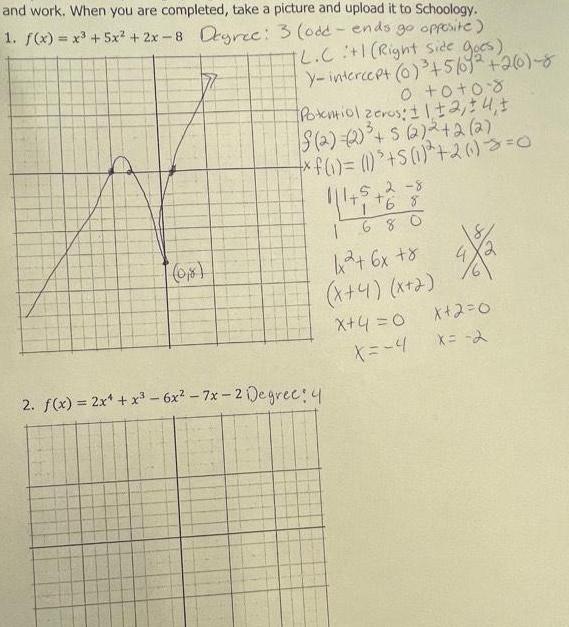 and work. When you are completed, take a picture and upload it to Schoology.
1. f(x) = x³ + 5x² + 2x − 8 Degree: 3 (odd - ends go opposite)
L.C :+1 (Right side goes)
y-intercept (0)³+5(0)²+2(0)-8
0 +0+0-8
Potential zeros: ±1, ±2, ±4, ±
f(2)=(2)³+5(2)²+2(2)
x f(1)=(1)³+5(1)²+2(1)-8=0
1| 1 +5 2 -8
1 +6 8
1 6 8 0
(0,8)
1x²+6x+8
8
4 2
6
(x+4)(x+2)
x+4=0 x+2=0
x=-4 x=-2
2. f(x) = 2x⁴ + x³ − 6x² − 7x − 2 Degree: 4